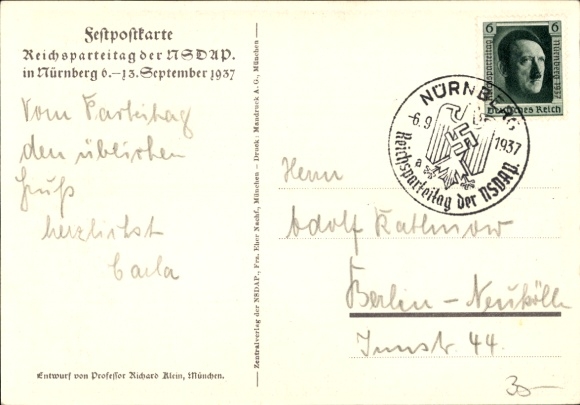 Festpostkarte
Reichsparteitag der NSDAP.
in Nürnberg 6.–13. September 1937
Vom Parteitag
den üblichen
Gruß
herzlichst
Carla
Entwurf von Professor Richard Klein, München.
Zentralverlag der NSDAP., Frz. Eher Nachf., München – Druck: Mandruck A.G., München
6 6
Reichsparteitag
Nürnberg 1937
Deutsches Reich
NÜRNBERG
-6.9 1937
a
Reichsparteitag der NSDAP.
Herrn
Adolf
Berlin – Neukölln
Innstr. 44.
30–